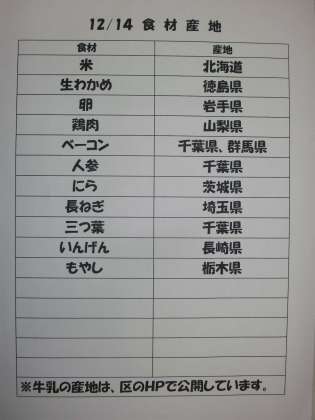 12/14 食材産地
食材 産地
米 北海道
生わかめ 徳島県
卵 岩手県
鶏肉 山梨県
ベーコン 千葉県、群馬県
人参 千葉県
にら 茨城県
長ねぎ 埼玉県
三つ葉 千葉県
いんげん 長崎県
もやし 栃木県
※牛乳の産地は、区のHPで公開しています。